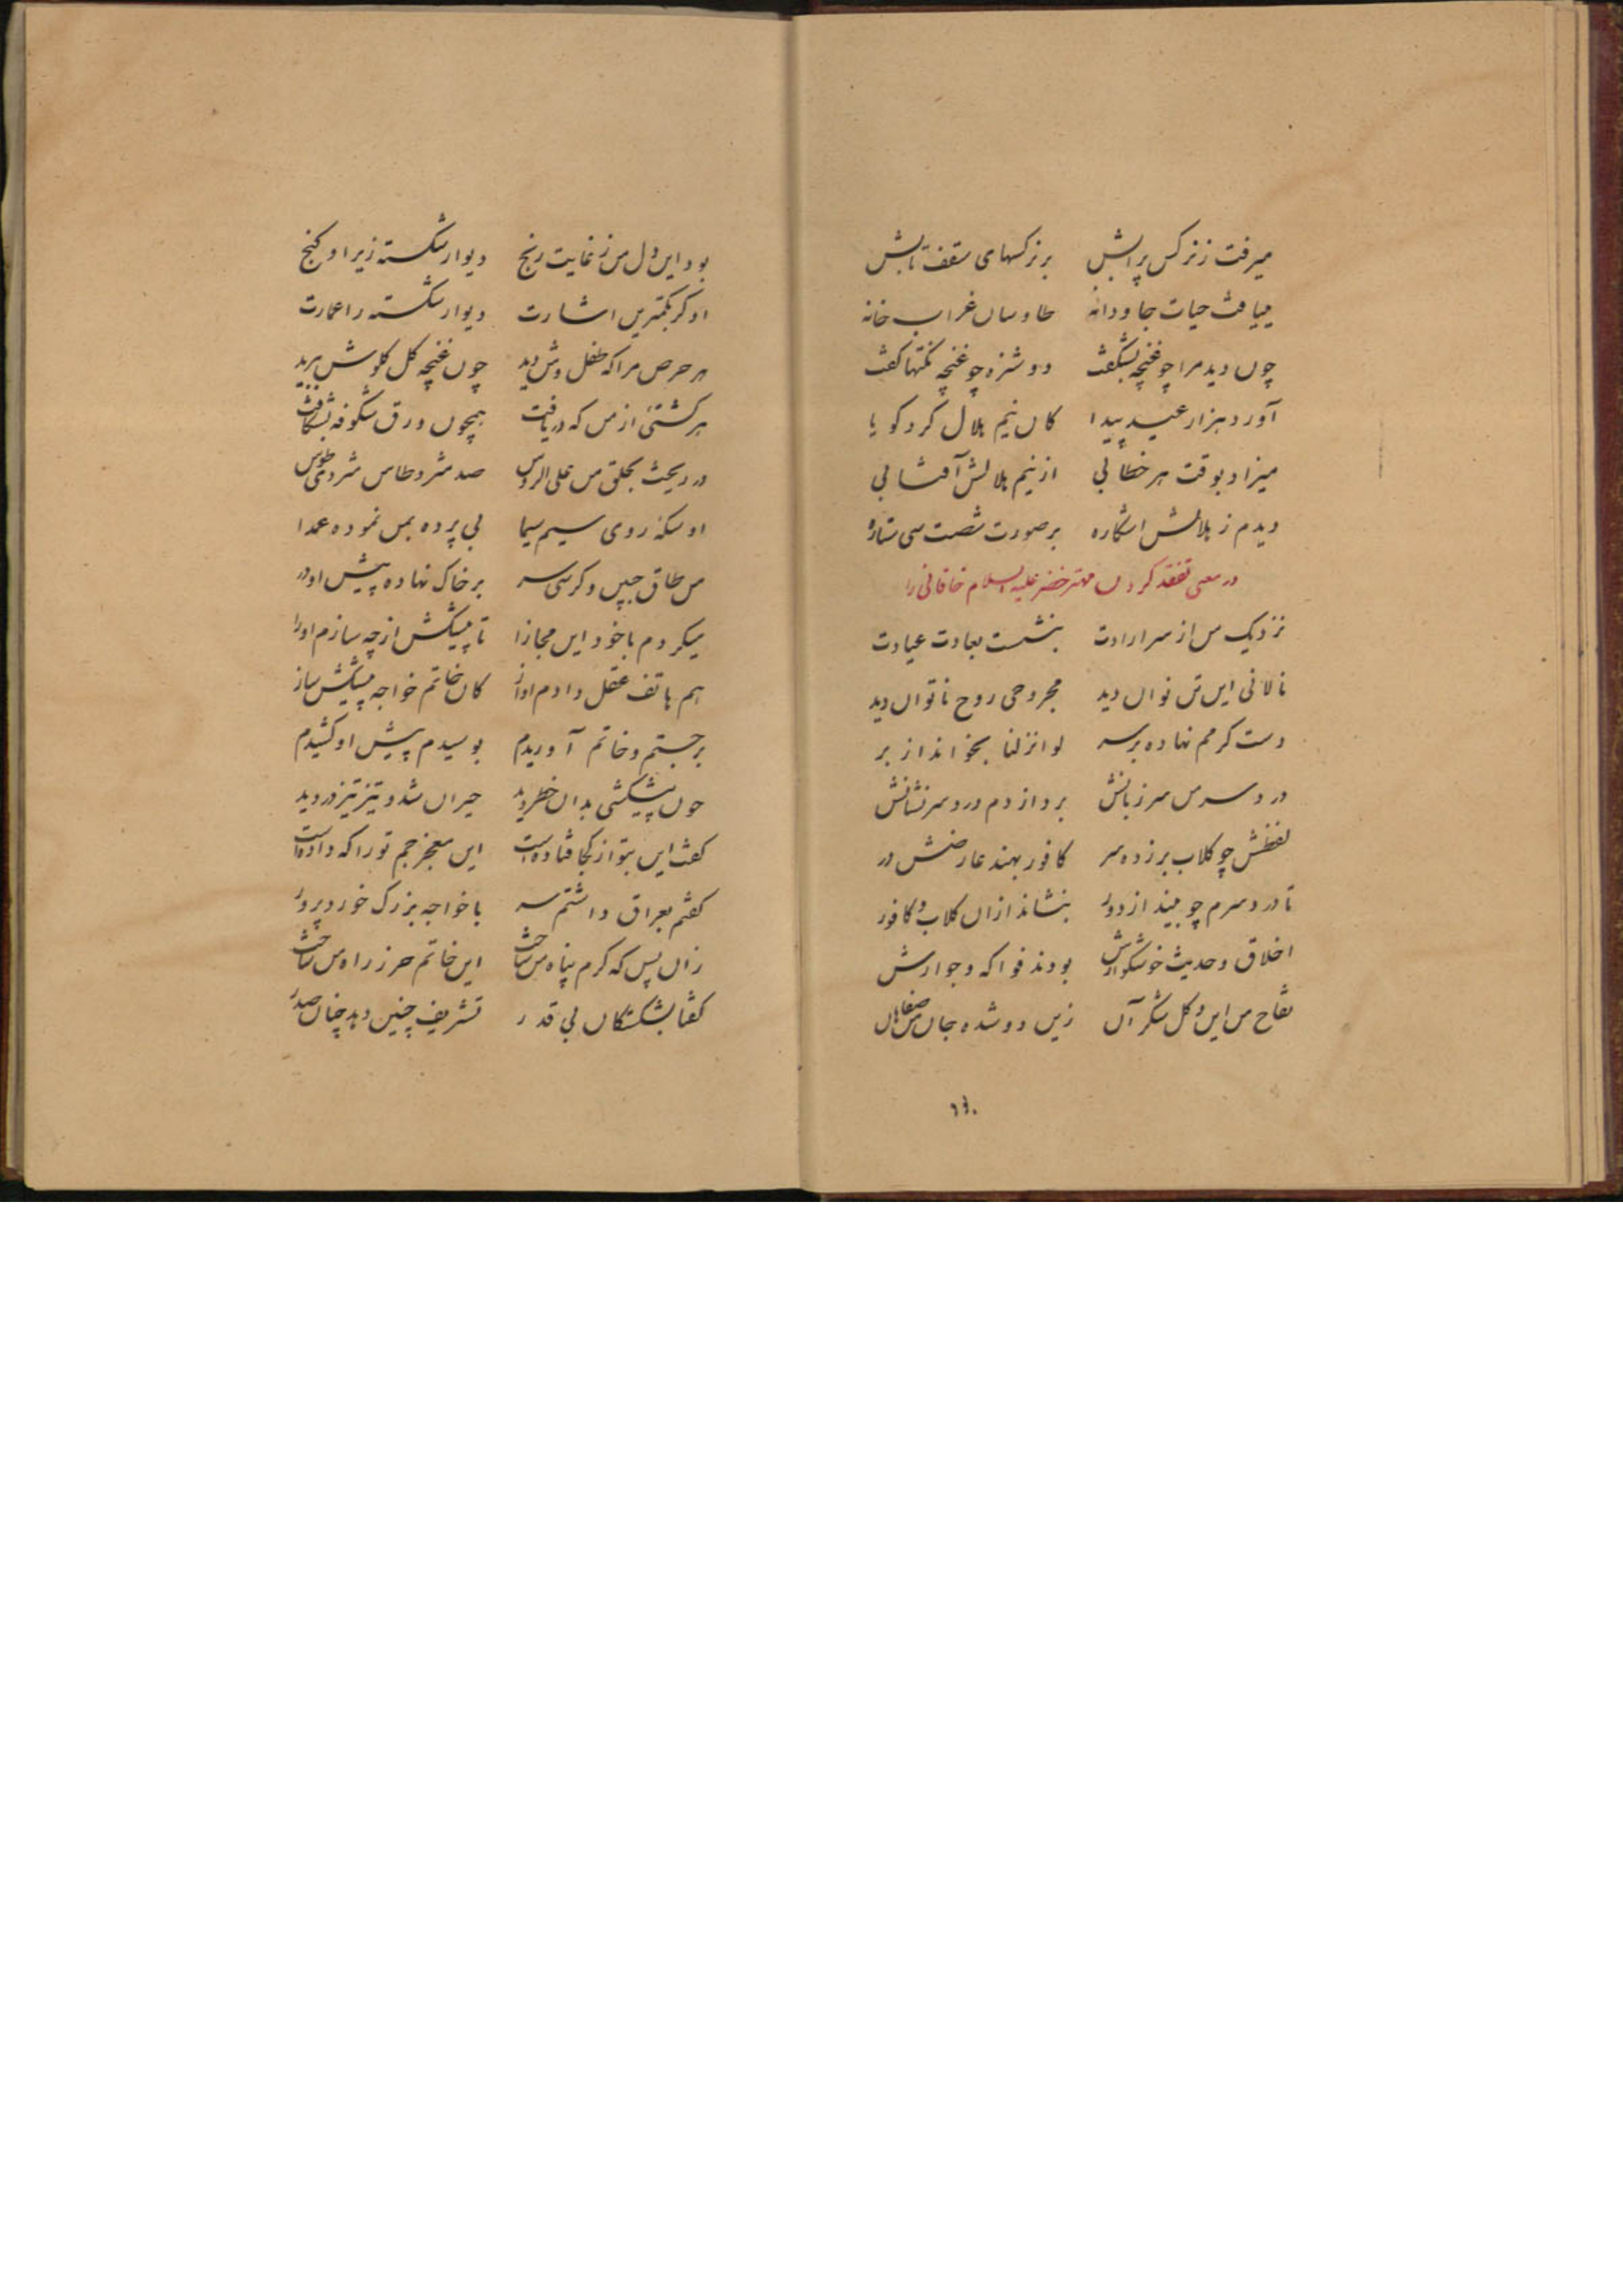 میرفت ز نرکس پرآبش بر نرکسهای سقف تابش
مییافت حیات جاودانه طاوسان غراب خانه
چون دید مرا چو غنچه بشکفت دوشنزه چو غنچه نکتها کفت
آورد هزار عید پیدا کان نیم هلال کرد کویا
میزاد بوقت هر خطابی از نیم هلالش آفتابی
دیدم ز هلالش اشکاره بر صورت شصت سی ستاره
در معنی تفقد کردن مهتر خضر علیه السلام خاقانی را
نزدیک من از سر ارادت بنشست بعادت عیادت
نالانی این تن نوان دید مجروحی روح ناتوان دید
دست کرمم نهاده بر سر لو انزلنا بخواند از بر
درد سر من سر زبانش برد از دم درد سر نشانش
لفظش چو کلاب بر زده سر کافور بهند عارضش در
تا درد سرم چو بیند از دور بنشاند از ان کلاب و کافور
اخلاق و حدیث خوشکوارش بودند فواکه و جوارش
تفاح من این و کل شکر آن زین دو شده جان من صفاهان
٦٤٠
بود این دل من ز غایت رنج دیوار شکسته زیر او کنج
او کرد بکمترین اشارت دیوار شکسته را عمارت
هر حرص مرا که طفل وش دید چون غنچه کل کلوش ببرید
هر کشتنی از من که دریافت همچون ورق شکوفه بشکافت
در ریخت بحلق من علی الروس صد مشر و طاس مشروی طوس
او سکنه روی سیم سیما بی پرده بمن نموده عمدا
من طاق جبین و کرسی سر بر خاک نهاده پیش او در
میکردم با خود این مجازا تا پیشکش از چه سازم اورا
هم هاتف عقل دادم اواز کان خاتم خواجه پیشکش ساز
برجستم و خاتم آوریدم بوسیدم پیش او کشیدم
چون پیشکشی بدان خطر دید حیران شد و تیز تیز در دید
کفت این بتو از کجا فتاده است این معجز جم تو را که داده است
کفتم بعراق داشتم سر با خواجه بزرک خورد پرور
زان پس که کرم پناه من ساخت این خاتم حرز راه من ساخت
کفتا بشکستکان بی قدر تشریف چنین دهد چنان صدر